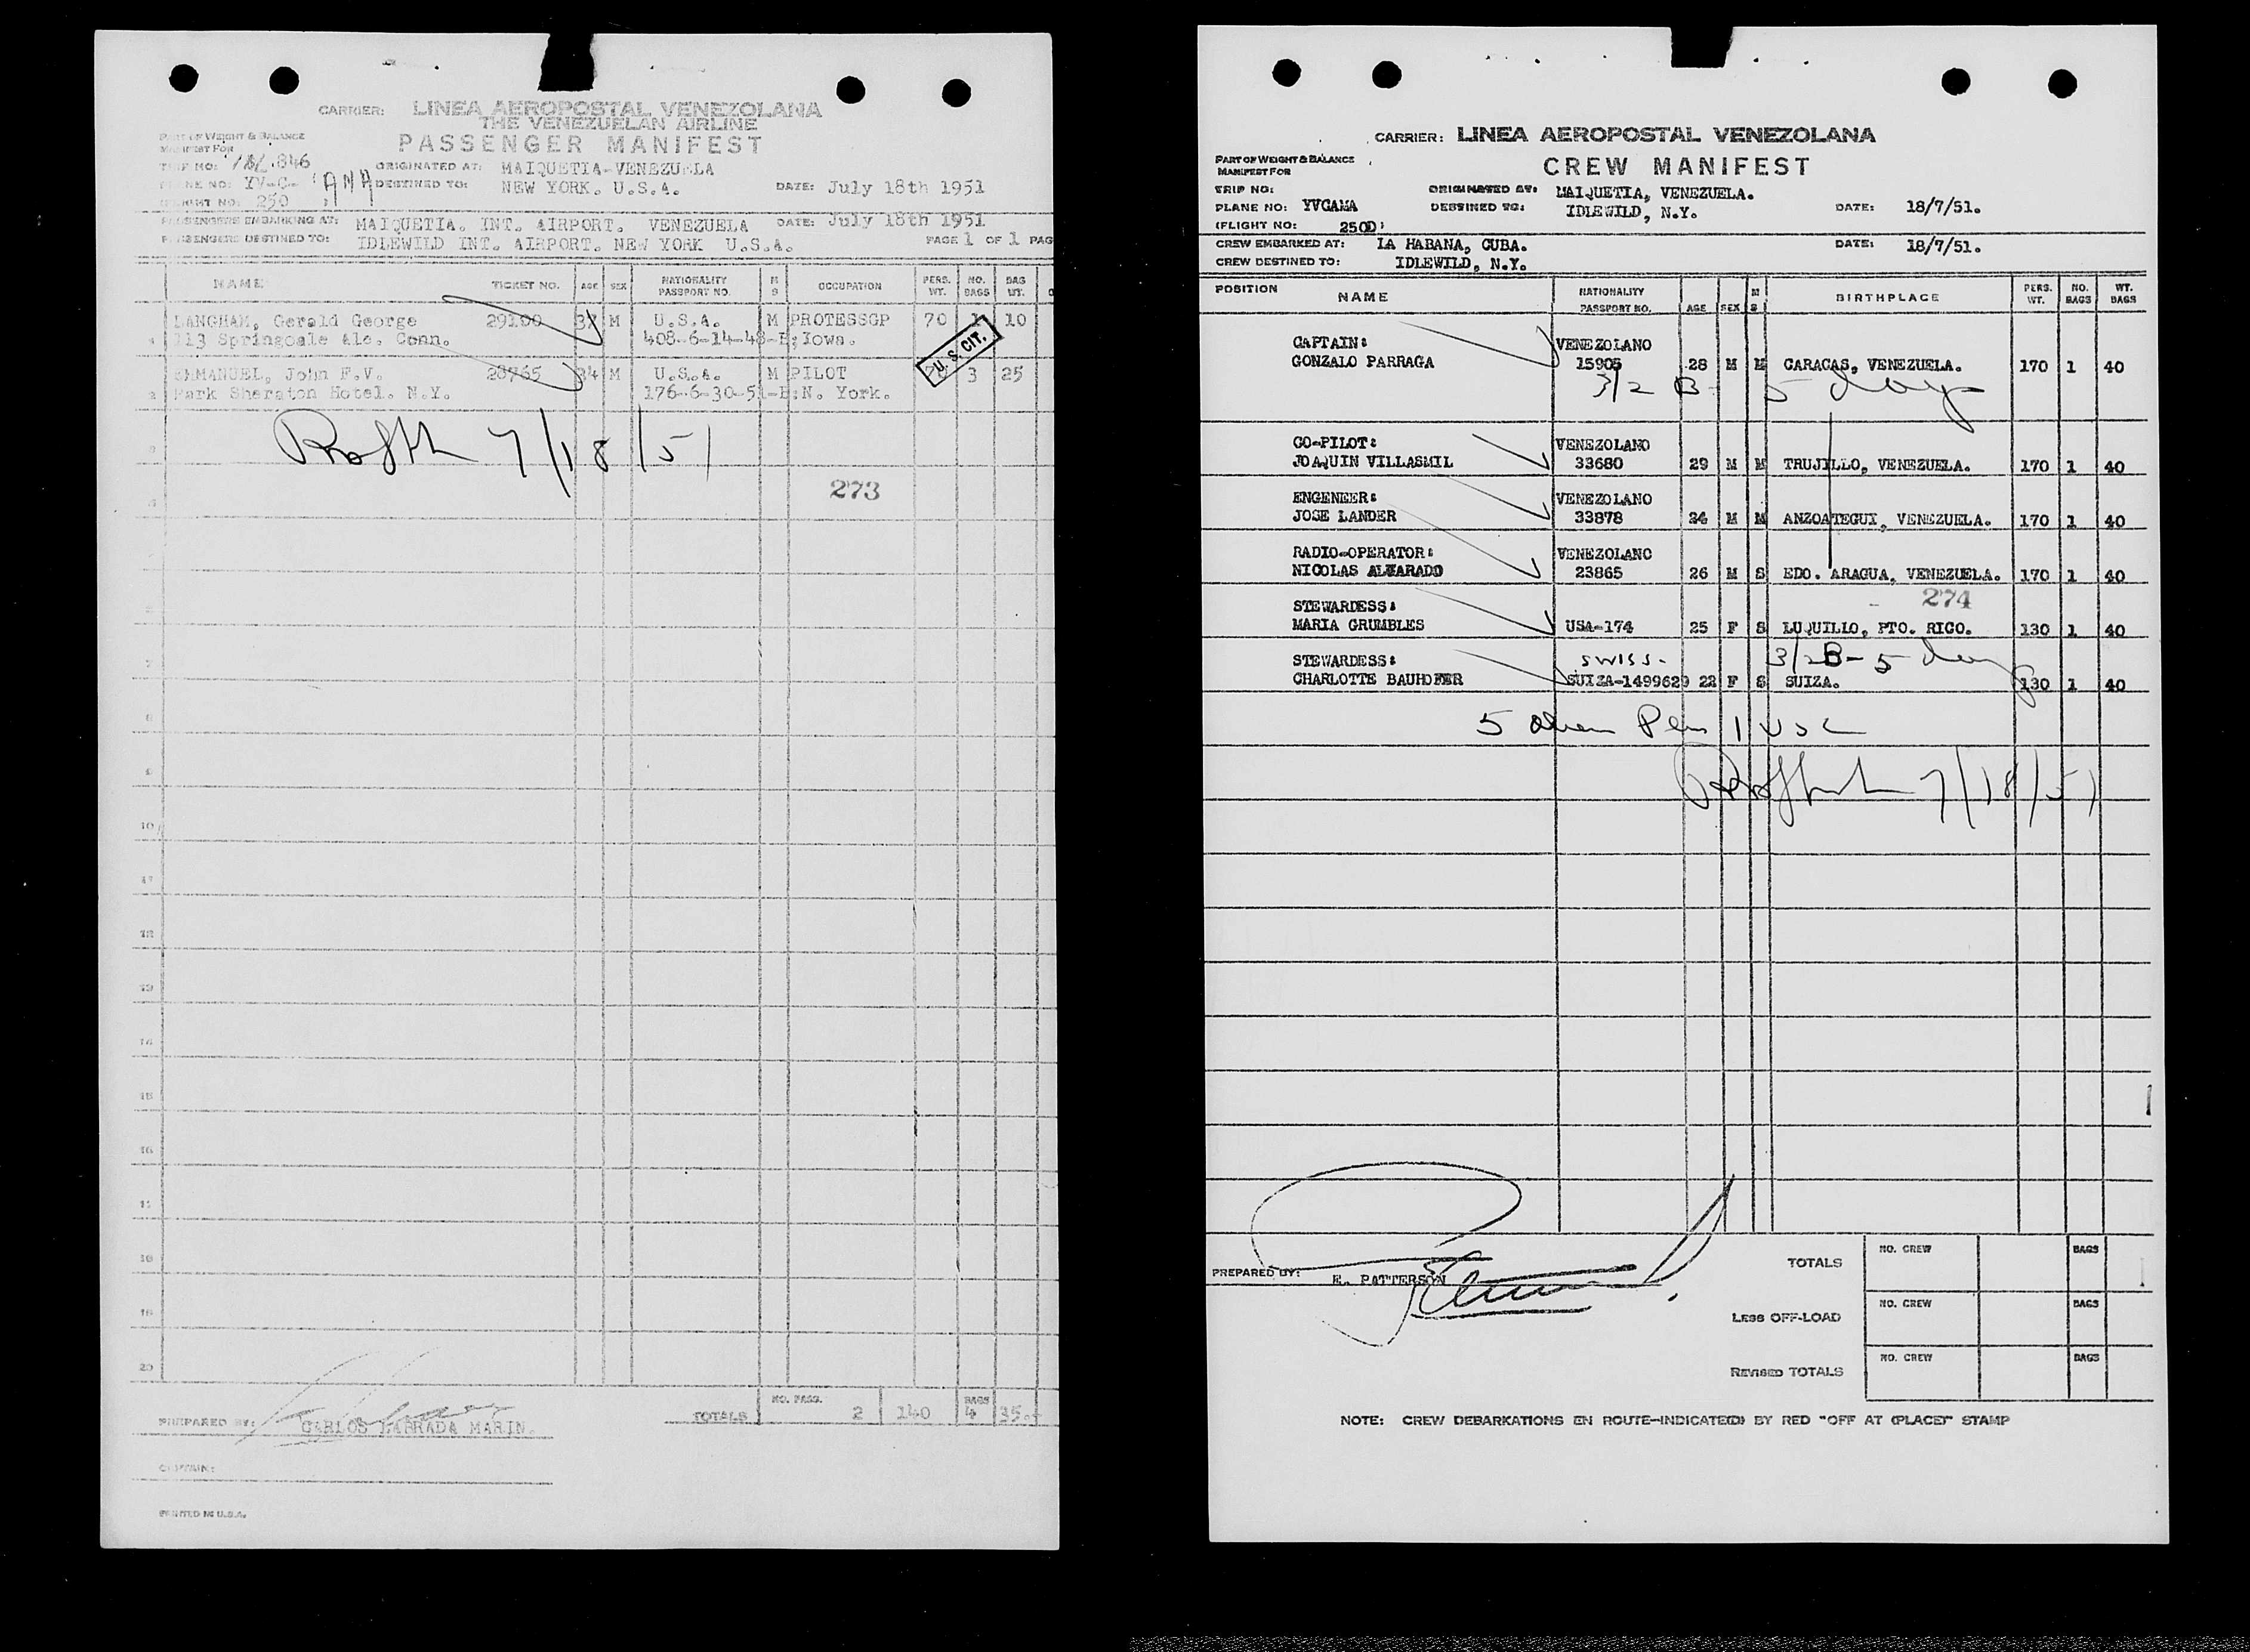 CARRIER: LINEA AEROPOSTAL VENEZOLANA
THE VENEZUELAN AIRLINE
PART OF WEIGHT & BALANCE
MANIFEST FOR
PASSENGER MANIFEST
TRIP NO: 846 ORIGINATED AT: MAIQUETIA-VENEZUELA
PLANE NO: YV-C-AMA DESTINED TO: NEW YORK. U.S.A. DATE: July 18th 1951
FLIGHT NO: 250
PASSENGERS EMBARKING AT: MAIQUETIA. INT. AIRPORT. VENEZUELA DATE: July 18th 1951
PASSENGERS DESTINED TO: IDLEWILD INT. AIRPORT. NEW YORK U.S.A. PAGE 1 OF 1 PAG
NAME TICKET NO. AGE SEX NATIONALITY PASSPORT NO. M S OCCUPATION PERS. WT. NO. BAGS BAG WT.
LANGHAM, Gerald George 29100 37 M U.S.A. M PROTESSGP 70 1 10
113 Springdale Ale. Conn. 408-6-14-48-B; Iowa.
U. S. CIT.
EMMANUEL, John F.V. 28765 34 M U.S.A. M PILOT 70 3 25
2 Park Sheraton Hotel. N.Y. 176-6-30-51-B:N. York.
7/18/51
273
10
11
12
13
14
15
16
17
18
19
20
PREPARED BY: CARLOS LABRADA MARIN.
TOTALS NO. PASS. 2 140 BAGS 4 35.-
CAPTAIN:
PRINTED IN U.S.A.
CARRIER: LINEA AEROPOSTAL VENEZOLANA
PART OF WEIGHT & BALANCE
MANIFEST FOR
CREW MANIFEST
TRIP NO: ORIGINATED AT: MAIQUETIA, VENEZUELA.
PLANE NO: YVCAMA DESTINED TO: IDLEWILD, N.Y. DATE: 18/7/51.
(FLIGHT NO: 250)
CREW EMBARKED AT: LA HABANA, CUBA. DATE: 18/7/51.
CREW DESTINED TO: IDLEWILD, N.Y.
POSITION NAME NATIONALITY PASSPORT NO. AGE SEX M S BIRTHPLACE PERS. WT. NO. BAGS WT. BAGS
CAPTAIN: VENEZOLANO
GONZALO PARRAGA 15905 28 M M CARACAS, VENEZUELA. 170 1 40
3/2 B- 5 days
CO-PILOT: VENEZOLANO
JOAQUIN VILLASMIL 33680 29 M M TRUJILLO, VENEZUELA. 170 1 40
ENGENEER: VENEZOLANO
JOSE LANDER 33878 24 M M ANZOATEGUI, VENEZUELA. 170 1 40
RADIO-OPERATOR: VENEZOLANO
NICOLAS ALVARADO 23865 26 M S EDO. ARAGUA, VENEZUELA. 170 1 40
274
STEWARDESS:
MARIA GRUMBLES USA-174 25 F S LUQUILLO, PTO. RICO. 130 1 40
STEWARDESS: SWISS- 3/2B- 5 days
CHARLOTTE BAUHOFER SUIZA-1499629 22 F S SUIZA. 130 1 40
5 alien Plus 1 USC
7/18/51
PREPARED BY: E. PATTERSON
TOTALS NO. CREW BAGS
LESS OFF-LOAD NO. CREW BAGS
REVISED TOTALS NO. CREW BAGS
NOTE: CREW DEBARKATIONS EN ROUTE-INDICATE(D) BY RED "OFF AT (PLACE)" STAMP